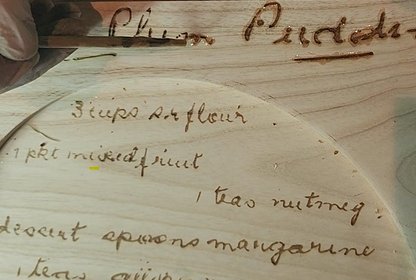 Plum Puddi
3 cups s.r flour
1 pkt mixed fruit
1 teas nutmeg
desert spoons margarine
1 teas